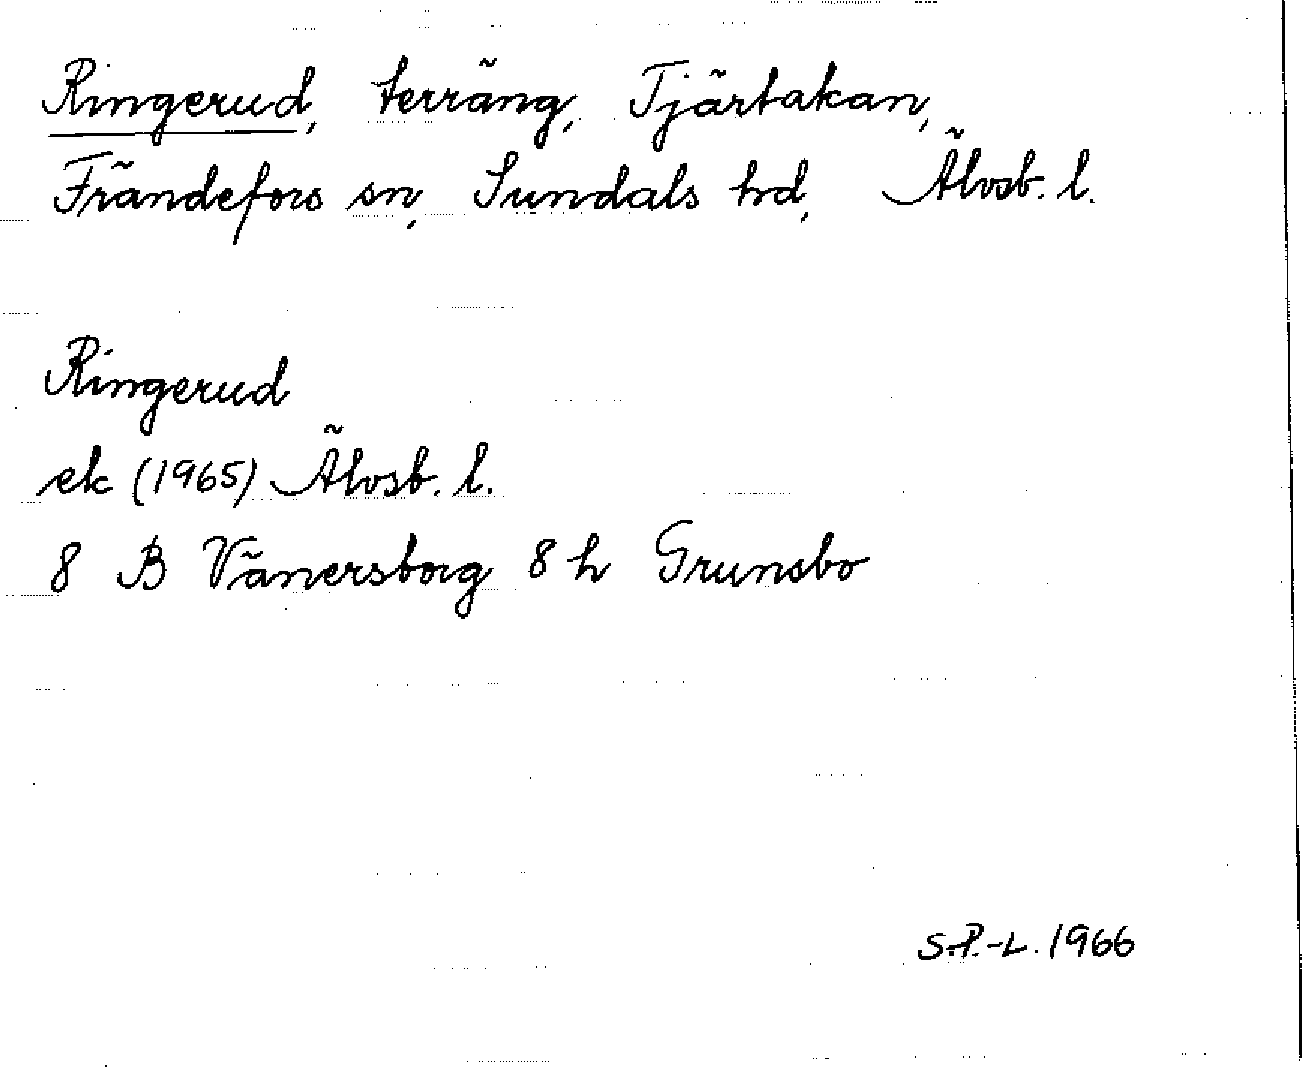 Ringerud, terräng, Tjärtakan,
Frändefors sn, Sundals hd, Älvsb. l.
Ringerud
ek (1965) Älvsb. l.
8 B Vänersborg 8 h Grunsbo
S.P.-L. 1966